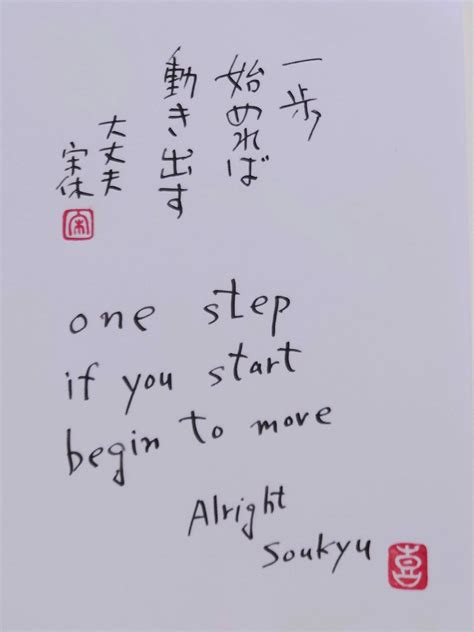 一歩
始めれば
動き出す
大丈夫
宋休
宋
one step
if you start
begin to move
Alright
Soukyu
喜